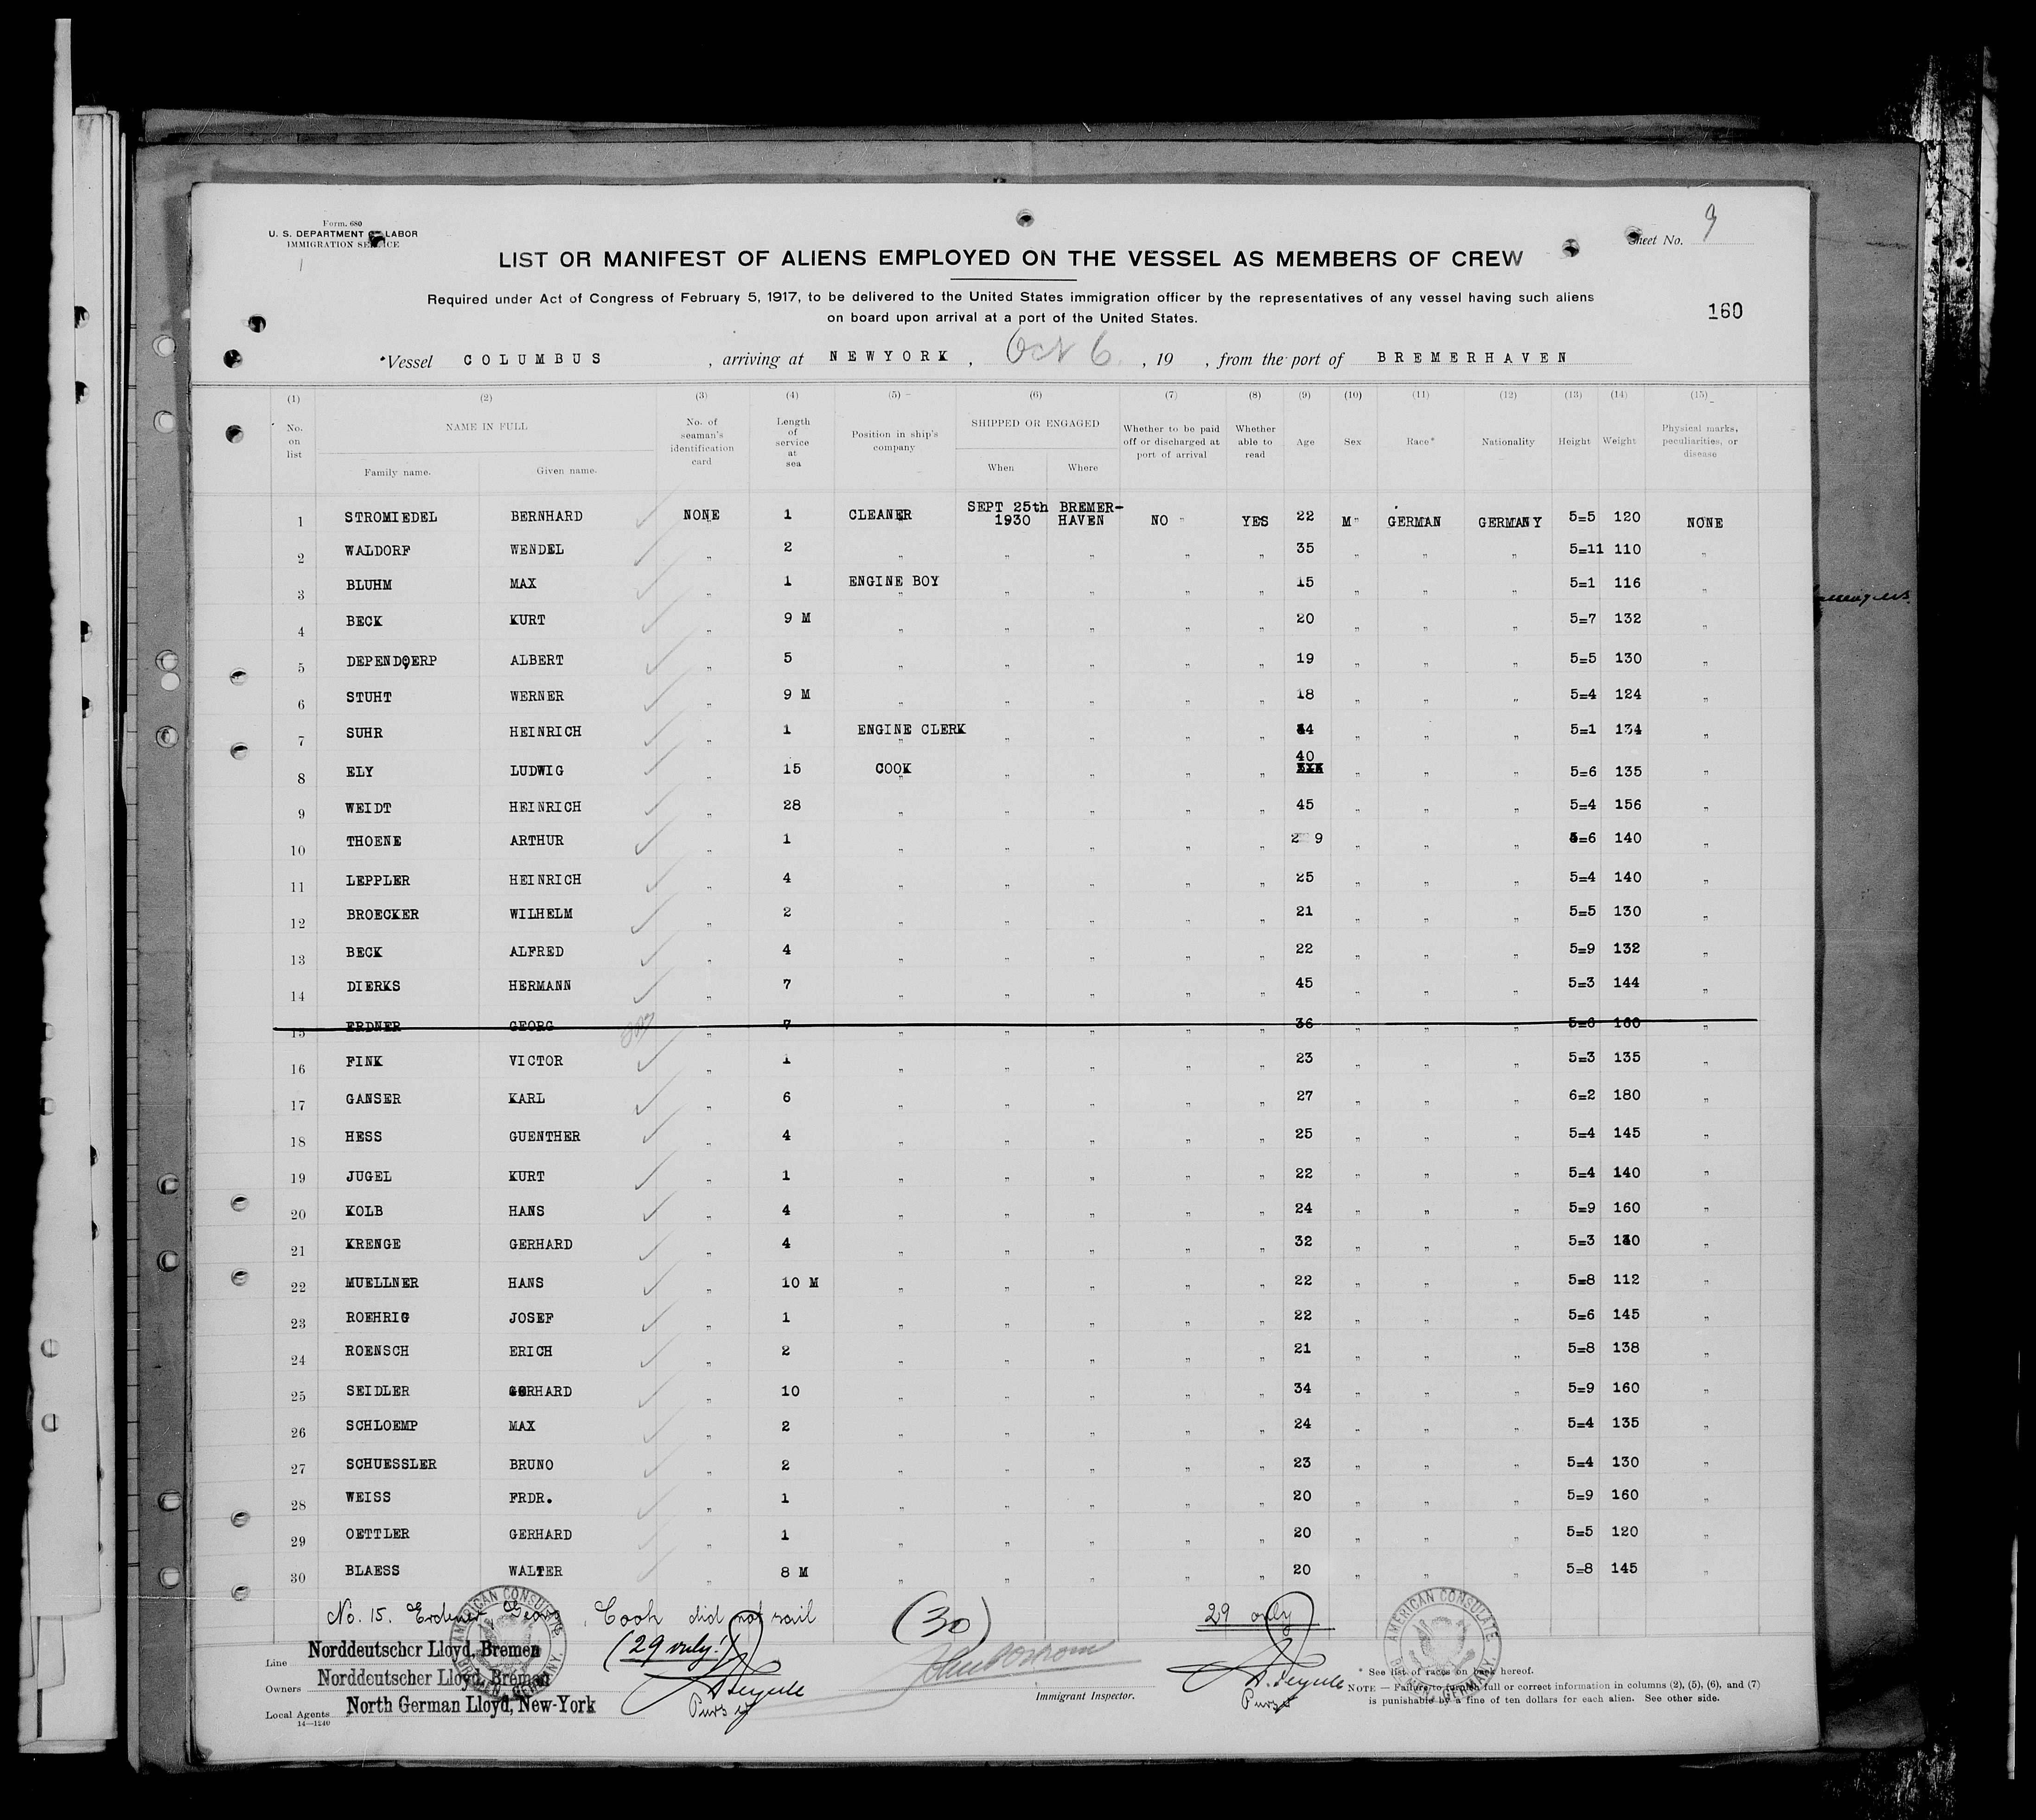 Form. 680
U. S. DEPARTMENT OF LABOR
IMMIGRATION SERVICE
Sheet No. 9
LIST OR MANIFEST OF ALIENS EMPLOYED ON THE VESSEL AS MEMBERS OF CREW
Required under Act of Congress of February 5, 1917, to be delivered to the United States immigration officer by the representatives of any vessel having such aliens
on board upon arrival at a port of the United States.
160
*Vessel COLUMBUS , arriving at NEWYORK , Oct 6. , 19 , from the port of BREMERHAVEN
(1) (2) (3) (4) (5) (6) (7) (8) (9) (10) (11) (12) (13) (14) (15)
No. on list NAME IN FULL Family name. Given name. No. of seaman's identification card Length of service at sea Position in ship's company SHIPPED OR ENGAGED When Where Whether to be paid off or discharged at port of arrival Whether able to read Age Sex Race* Nationality Height Weight Physical marks, peculiarities, or disease
1 STROMIEDEL BERNHARD NONE 1 CLEANER SEPT 25th 1930 BREMER-HAVEN NO YES 22 M GERMAN GERMANY 5=5 120 NONE
2 WALDORF WENDEL " 2 " " " " " 35 " " " 5=11 110 "
3 BLUHM MAX " 1 ENGINE BOY " " " " " 15 " " " 5=1 116 "
4 BECK KURT " 9 M " " " " " 20 " " " 5=7 132 "
5 DEPENDOERP ALBERT " 5 " " " " " 19 " " " 5=5 130 "
6 STUHT WERNER " 9 M " " " " " 18 " " " 5=4 124 "
7 SUHR HEINRICH " 1 ENGINE CLERK " " " " " 44 " " " 5=1 134 "
8 ELY LUDWIG " 15 COOK " " " " 40 " " " 5=6 135 "
9 WEIDT HEINRICH " 28 " " " " " 45 " " " 5=4 156 "
10 THOENE ARTHUR " 1 " " " " " 2 9 " " " 5=6 140 "
11 LEPPLER HEINRICH " 4 " " " " " 25 " " " 5=4 140 "
12 BROECKER WILHELM " 2 " " " " " 21 " " " 5=5 130 "
13 BECK ALFRED " 4 " " " " " 22 " " " 5=9 132 "
14 DIERKS HERMANN " 7 " " " " " 45 " " " 5=3 144 "
15 ERDNER GEORG " 7 " " " " " 36 " " " 5=6 160 "
16 FINK VICTOR " 1 " " " " " 23 " " " 5=3 135 "
17 GANSER KARL " 6 " " " " " 27 " " " 6=2 180 "
18 HESS GUENTHER " 4 " " " " " 25 " " " 5=4 145 "
19 JUGEL KURT " 1 " " " " " 22 " " " 5=4 140 "
20 KOLB HANS " 4 " " " " " 24 " " " 5=9 160 "
21 KRENGE GERHARD " 4 " " " " " 32 " " " 5=3 "
22 MUELLNER HANS " 10 M " " " " " 22 " " " 5=8 112 "
23 ROEHRIG JOSEF " 1 " " " " " 22 " " " 5=6 145 "
24 ROENSCH ERICH " 2 " " " " " 21 " " " 5=8 138 "
25 SEIDLER GERHARD " 10 " " " " " 34 " " " 5=9 160 "
26 SCHLOEMP MAX " 2 " " " " " 24 " " " 5=4 135 "
27 SCHUESSLER BRUNO " 2 " " " " " 23 " " " 5=4 130 "
28 WEISS FRDR. " 1 " " " " " 20 " " " 5=9 160 "
29 OETTLER GERHARD " 1 " " " " " 20 " " " 5=5 120 "
30 BLAESS WALTER " 8 M " " " " " 20 " " " 5=8 145 "
No. 15. Erdener Georg, Cook did not sail (30) 29 only
(29 only!)
Line Norddeutscher Lloyd, Bremen
Owners Norddeutscher Lloyd, Bremen
Local Agents North German Lloyd, New-York
14—1240
Purser
Immigrant Inspector.
Purser
AMERICAN CONSULATE BREMEN, GERMANY.
AMERICAN CONSULATE BREMEN, GERMANY.
* See list of races on back hereof.
NOTE.—Failure to furnish full or correct information in columns (2), (5), (6), and (7)
is punishable by a fine of ten dollars for each alien. See other side.